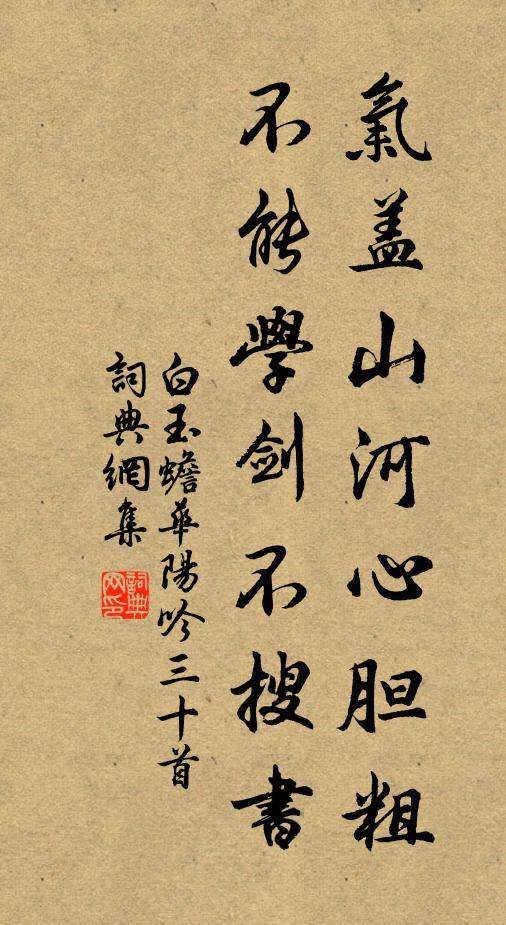 氣蓋山河心胆粗
不能學劍不搜書
白玉蟾華陽吟三十首
詞典網集
詞典网印